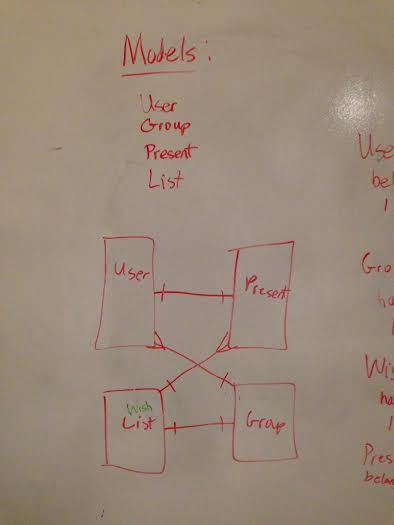 Models:
User
Group
Present
List
User
Present
Wish
List
Group
Use
bel
1
Gro
ha
Wis
ha
1
Pres
belan